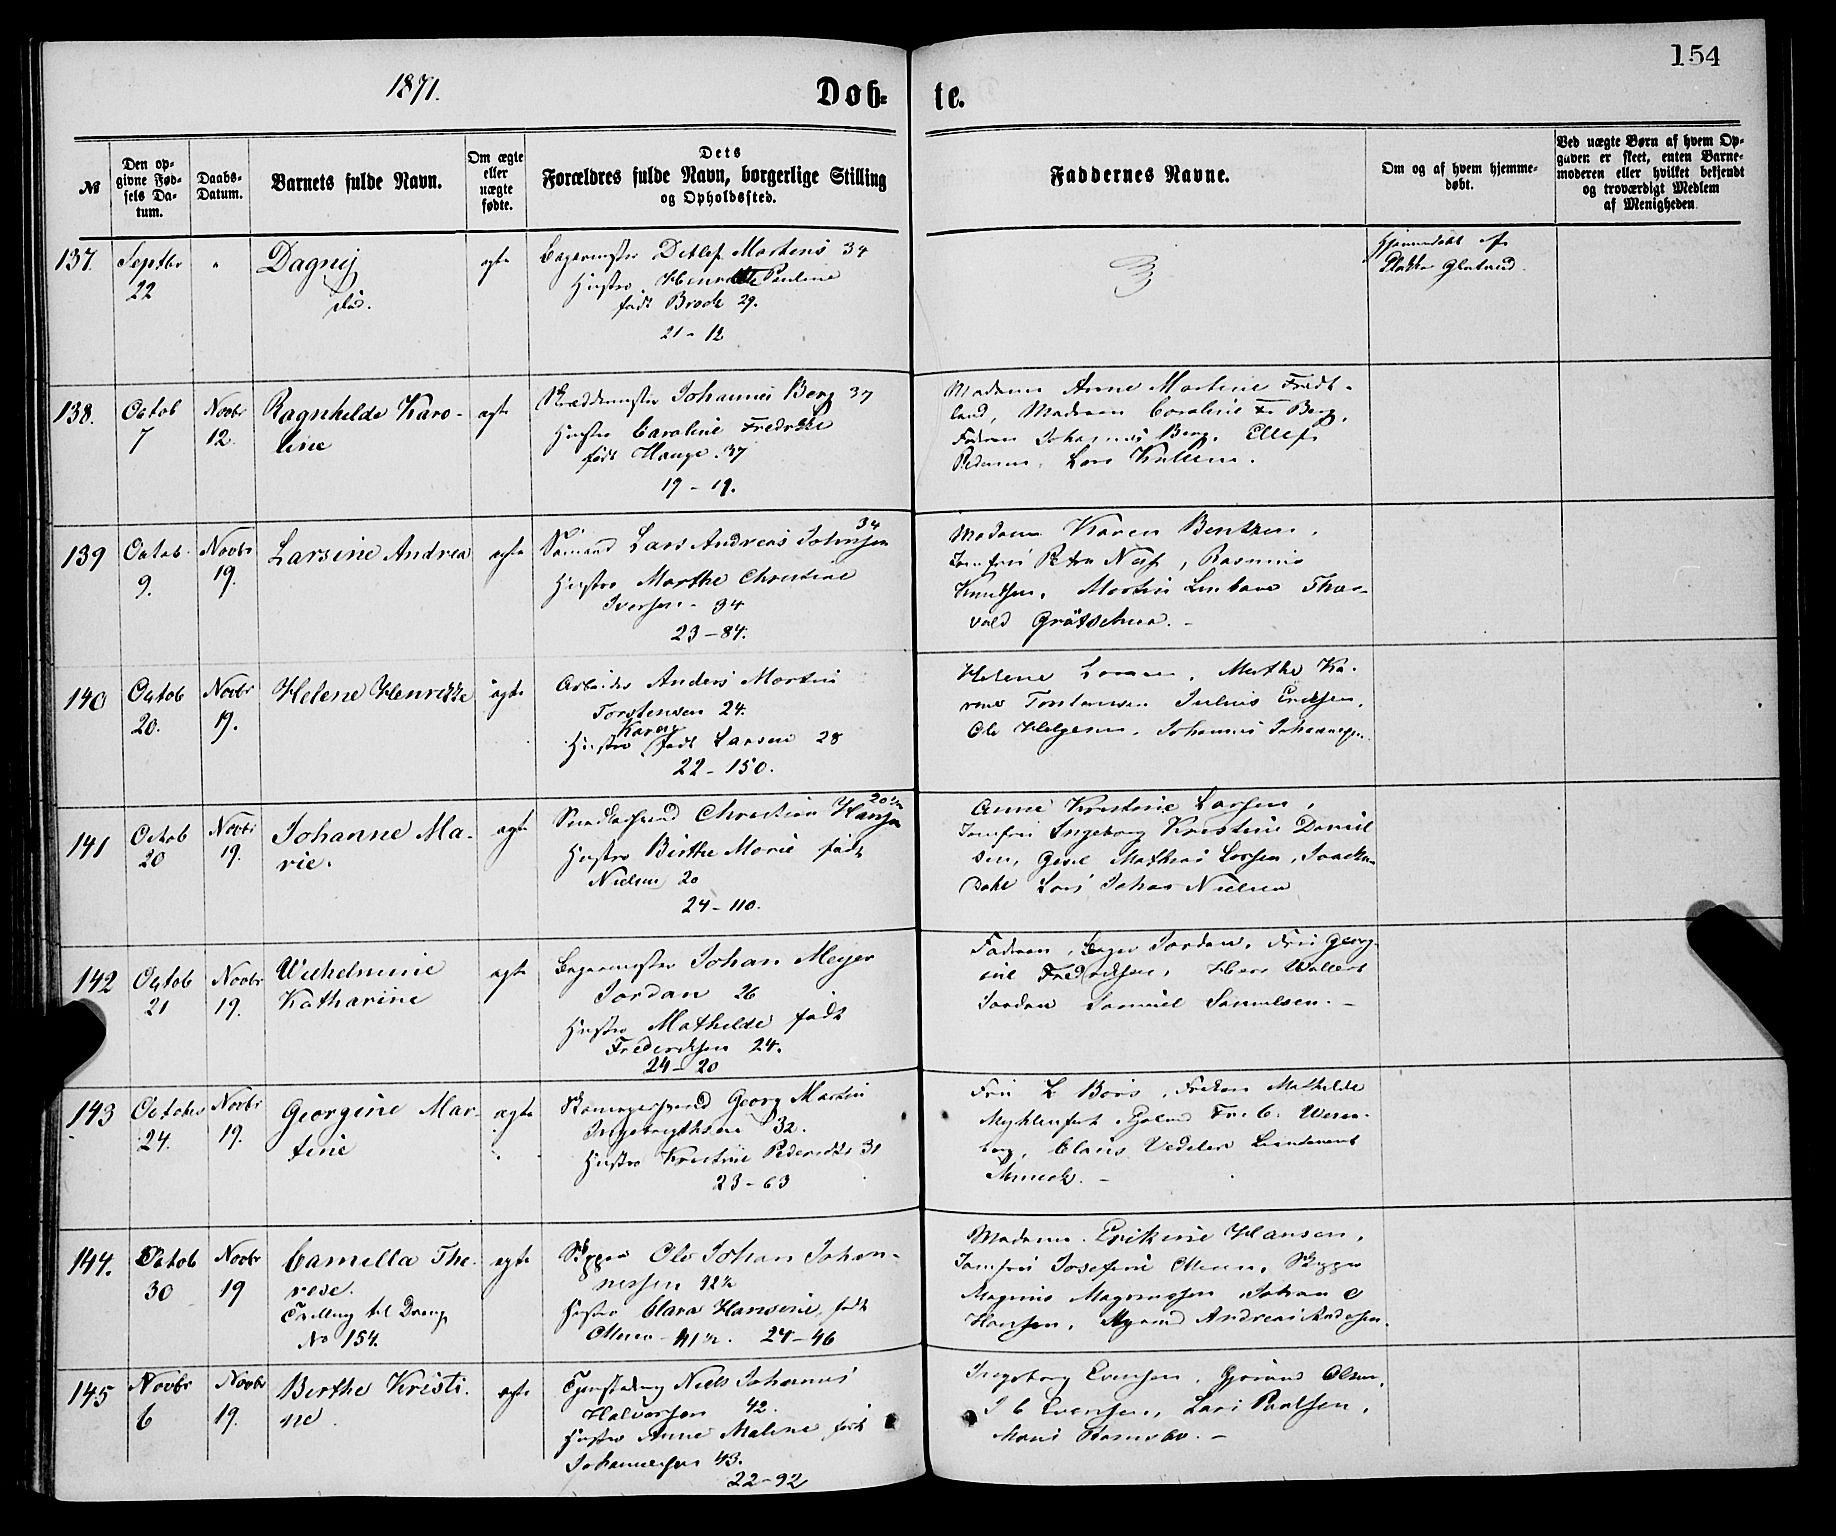 154
1871.
Døb-
te.
№
Den op-
givne Fød-
sels Da-
tum.
Daabs-
Datum.
Barnets fulde Navn.
Om ægte
eller
uægte
fødte.
Dets
Forældres fulde Navn, borgerlige Stilling
og Opholdssted.
Faddernes Navne.
Om og af hvem hjemme-
døbt.
Ved uægte Børn af hvem Op-
gaven er skeet, enten Barne-
moderen eller hvilket bekjendt
og troværdigt Medlem
af Menigheden
137. Septbr
22
"
Dagny
død.
ægte
Bagermester Ditlef Martens 34
Hustro Henriette Pauline
født Brock 29.
21-12
Hjemmedøbt af
138. Octob
7
Novbr
12.
Ragnhilde Karo-
line
ægte
Skræddermester Johannes Berg 37
Hustro Caroline Fredrikke
født Hauge. 37
19-19.
Madame Anne Martine
land, Madame Caroline Fr Berg,
Faderen Johannes Berg, Ellef
Pedersen, Lars
139 Octob
9.
Novbr
19.
Larsine Andrea
ægte
34
Sømand Lars Andreas Johnsen
Hustro Marthe Christine
Iversen - 34
23-84.
Madame Karen Bentzen,
Jomfru Petra Næs, Rasmus
Knudsen, Martin Thor-
vald
140 Octob
20.
Novbr
19.
Helene Henrikke
ægte
Arbeider Anders Martin
Torstensen 24.
Karen
Hustro født Larsen 28
22-150.
Helene Larsen, Marthe Ka-
rine Torstensen Julius Eriksen,
Ole Helgesen, Johannes Johannessen
141 Octob
20
Novbr
19.
Johanne Ma-
rie.
ægte
Christian Hansen
Hustro Birthe Marie født
Nielsen 20
24-110.
Anne Kristine Larsen,
Jomfru Ingeborg Kristine Daniel
sen, Mathias Larsen,
Dahl Lars Johan Nielsen
142 Octob
21
Novbr
19.
Wilhelmine
Katharine
ægte
Bagermester Johan Meyer
Jordan 26
Hustro Mathilde født
Frederiksen 24.
24-20
Faderen, Bager Jordan, Fru Georg-
ine Fredriksen, Herr
Jordan Samuel Samuelsen. -
143 October
24.
Novbr
19.
Georgine Mar-
tine
ægte
Georg Martin
Ingebrigthsen 32.
Hustro Kristine 31
23-63
Fru L Boys, Frøken Mathilde
Fru C.
berg, Claus Vedeler Lieutenant
Munch. -
144. Octob
30
Novbr
19
Camella The-
rese.
Tvilling til Dreng
No 154.
ægte
Skipper Ole Johan Johan-
nessen 42½
Hustro Clara Hansine, født
Olsen - 41½. 24-46
Madame Erikine Hansen,
Jomfru Josefine Olsen, Skipper
Magnus Magnussen Johan C
Hansen, Andreas Andersen.
145 Novbr
6
Novbr
19.
Berthe Kristi-
ne.
ægte
Niels Johannes
Halvorsen 42.
Hustro Anne Maline født
Johannesen 43.
22-92
Ingeborg Evensen, Olsen,
J C Evensen, Lars Paulsen,